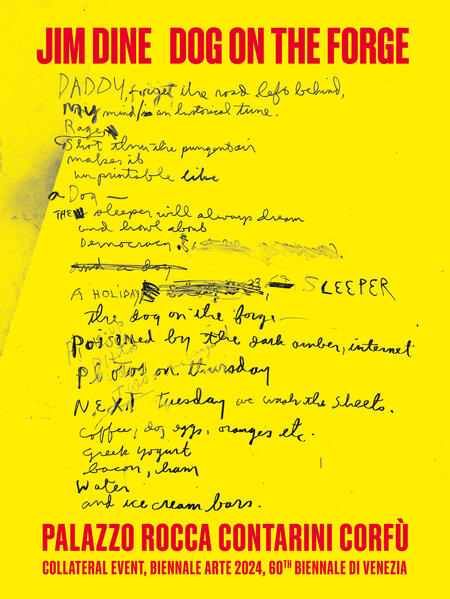 JIM DINE DOG ON THE FORGE
DADDY, forget the road left behind,
my mind is an historical tune.
Rage
Shot thru the pungent air
makes it
unprintable like
a Dog —
THE sleeper will always dream
and howl about
Democracy
and a dog
A HOLIDAY, — SLEEPER
the dog on the forge —
Poisoned by the dark amber, internet
photos on thursday
NEXT tuesday we wash the sheets.
coffee, dog eggs, oranges etc.
greek yogurt
bacon, ham
Water
and ice cream bars.
PALAZZO ROCCA CONTARINI CORFÙ
COLLATERAL EVENT, BIENNALE ARTE 2024, 60TH BIENNALE DI VENEZIA